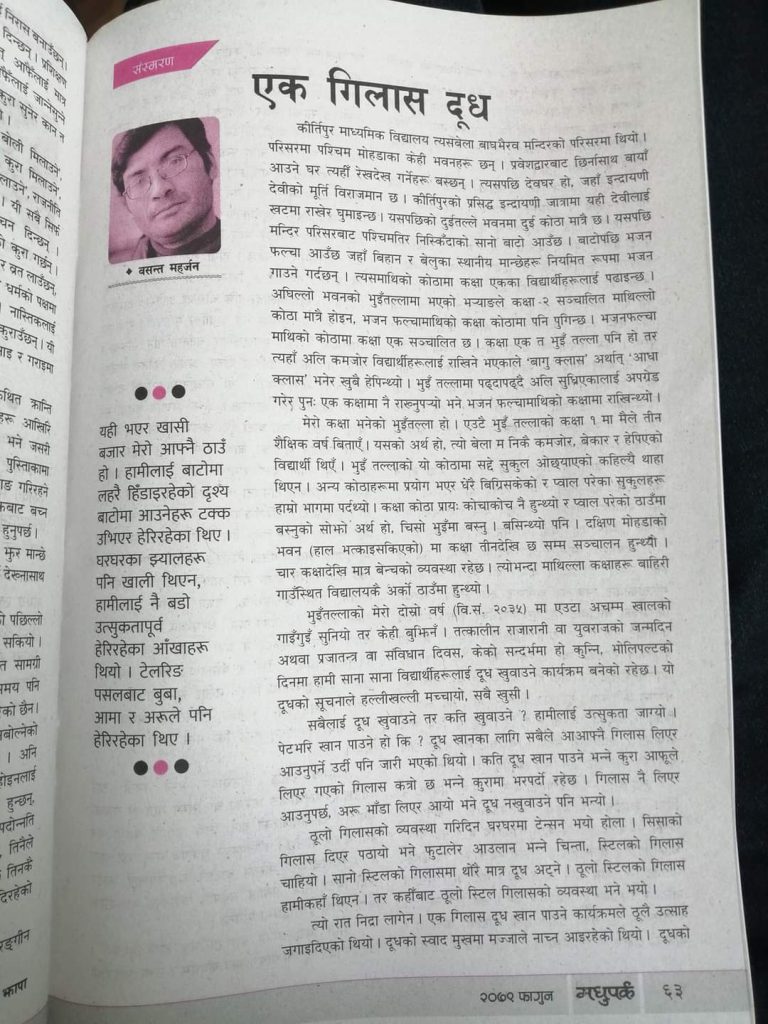 निरास बनाउँछन् ।
दिन्छन् । प्रशिक्षण
आफैँलाई मात्र
कुरा सुनेर कान न
बोली मिलाउने,
कुरा मिलाउने,
राजनीति
। यी सबै सिर्फ
दिन्छन् ।
कुरा गर्छन् ।
र व्रत लाउँछन्,
धर्मको पक्षमा
। नास्तिकलाई
कुराउँछन् । यी
र गराइमा
क्रान्ति
आखिर
भने जसरी
पुस्तिकामा
गरिरहने
बाच्न
हुनुपर्छ ।
झुर मान्छे
देख्नासाथ
पछिल्लो
सकियो ।
सामग्री
समय पनि
छैन ।
। अनि
हुन्छन्,
तिनैले
तिनकै
झापा
संस्मरण
एक गिलास दूध
♦ बसन्त महर्जन
यही भएर खासी
बजार मेरो आफ्नै ठाउँ
हो । हामीलाई बाटोमा
लहरै हिँडाइरहेको दृश्य
बाटोमा आउनेहरू टक्क
उभिएर हेरिरहेका थिए ।
घरघरका झ्यालहरू
पनि खाली थिएनन्,
हामीलाई नै बडो
उत्सुकतापूर्व
हेरिरहेका आँखाहरू
थियो । टेलरिङ
पसलबाट बुबा,
आमा र अरूले पनि
हेरिरहेका थिए ।
कीर्तिपुर माध्यमिक विद्यालय त्यसबेला बाघभैरव मन्दिरको परिसरमा थियो ।
परिसरमा पश्चिम मोहडाका केही भवनहरू छन् । प्रवेशद्वारबाट छिर्नासाथ बायाँ
आउने घर त्यहीँ रेखदेख गर्नेहरू बस्छन् । त्यसपछि देवघर हो, जहाँ इन्द्रायणी
देवीको मूर्ति विराजमान छ । कीर्तिपुरको प्रसिद्ध इन्द्रायणी जात्रामा यही देवीलाई
खटमा राखेर घुमाइन्छ । यसपछिको दुईतल्ले भवनमा दुई कोठा मात्रै छ । यसपछि
मन्दिर परिसरबाट पश्चिमतिर निस्किँदाको सानो बाटो आउँछ । बाटोपछि भजन
फल्चा आउँछ जहाँ बिहान र बेलुका स्थानीय मान्छेहरू नियमित रूपमा भजन
गाउने गर्दछन् । त्यसमाथिको कोठामा कक्षा एकका विद्यार्थीहरूलाई पढाइन्छ ।
अघिल्लो भवनको भुइँतल्लामा भएको भर्‍याङले कक्षा -२ सञ्चालित माथिल्लो
कोठा मात्रै होइन, भजन फल्चामाथिको कक्षा कोठामा पनि पुगिन्छ । भजनफल्चा
माथिको कोठामा कक्षा एक सञ्चालित छ । कक्षा एक त भुइँ तल्ला पनि हो तर
त्यहाँ अलि कमजोर विद्यार्थीहरूलाई राखिने भएकाले ‘बागु क्लास’ अर्थात् ‘आधा
क्लास’ भनेर खुबै हेपिन्थ्यो । भुइँ तल्लामा पढ्दापढ्दै अलि सुध्रिएकालाई अपग्रेड
गरेर पुनः एक कक्षामा नै राख्नुपर्‍यो भने भजन फल्चामाथिको कक्षामा राखिन्थ्यो ।
मेरो कक्षा भनेको भुइँतल्ला हो । एउटै भुइँ तल्लाको कक्षा १ मा मैले तीन
शैक्षिक वर्ष बिताएँ । यसको अर्थ हो, त्यो बेला म निकै कमजोर, बेकार र हेपिएको
विद्यार्थी थिएँ । भुइँ तल्लाको यो कोठामा सद्दे सुकुल ओछ्याएको कहिल्यै थाहा
थिएन । अन्य कोठाहरूमा प्रयोग भएर धेरै बिग्रिसकेको र प्वाल परेका सुकुलहरू
हाम्रो भागमा पर्दथ्यो । कक्षा कोठा प्रायः कोचाकोच नै हुन्थ्यो र प्वाल परेको ठाउँमा
बस्नुको सोझो अर्थ हो, चिसो भुइँमा बस्नु । बसिन्थ्यो पनि । दक्षिण मोहडाको
भवन (हाल भत्काइसकिएको) मा कक्षा तीनदेखि छ सम्म सञ्चालन हुन्थ्यो ।
चार कक्षादेखि मात्र बेन्चको व्यवस्था रहेछ । त्योभन्दा माथिल्ला कक्षाहरू बाहिरी
गाउँस्थित विद्यालयकै अर्को ठाउँमा हुन्थ्यो ।
भुइँतल्लाको मेरो दोस्रो वर्ष (वि.सं. २०३५) मा एउटा अचम्म खालको
गाइँगुइँ सुनियो तर केही बुझिनँ । तत्कालीन राजारानी वा युवराजको जन्मदिन
अथवा प्रजातन्त्र वा संविधान दिवस, केको सन्दर्भमा हो कुन्नि, भोलिपल्टको
दिनमा हामी साना साना विद्यार्थीहरूलाई दूध खुवाउने कार्यक्रम बनेको रहेछ । यो
दूधको सूचनाले हल्लीखल्ली मच्चायो, सबै खुसी ।
सबैलाई दूध खुवाउने तर कति खुवाउने ? हामीलाई उत्सुकता जाग्यो ।
पेटभरि खान पाउने हो कि ? दूध खानका लागि सबैले आआफ्नै गिलास लिएर
आउनुपर्ने उर्दी पनि जारी भएको थियो । कति दूध खान पाउने भन्ने कुरा आफूले
लिएर गएको गिलास कत्रो छ भन्ने कुरामा भरपर्दो रहेछ । गिलास नै लिएर
आउनुपर्छ, अरू भाँडा लिएर आयो भने दूध नखुवाउने पनि भन्यो ।
ठूलो गिलासको व्यवस्था गरिदिन घरघरमा टेन्सन भयो होला । सिसाको
गिलास दिएर पठायो भने फुटालेर आउलान भन्ने चिन्ता, स्टिलको गिलास
चाहियो । सानो स्टिलको गिलासमा थोरै मात्र दूध अट्ने । ठूलो स्टिलको गिलास
हामीकहाँ थिएन । तर कहीँबाट ठूलो स्टिल गिलासको व्यवस्था भने भयो ।
त्यो रात निद्रा लागेन । एक गिलास दूध खान पाउने कार्यक्रमले ठूलै उत्साह
जगाइदिएको थियो । दूधको स्वाद मुखमा मज्जाले नाच्न आइरहेको थियो । दूधको
२०७९ फागुन मधुपर्क ६३